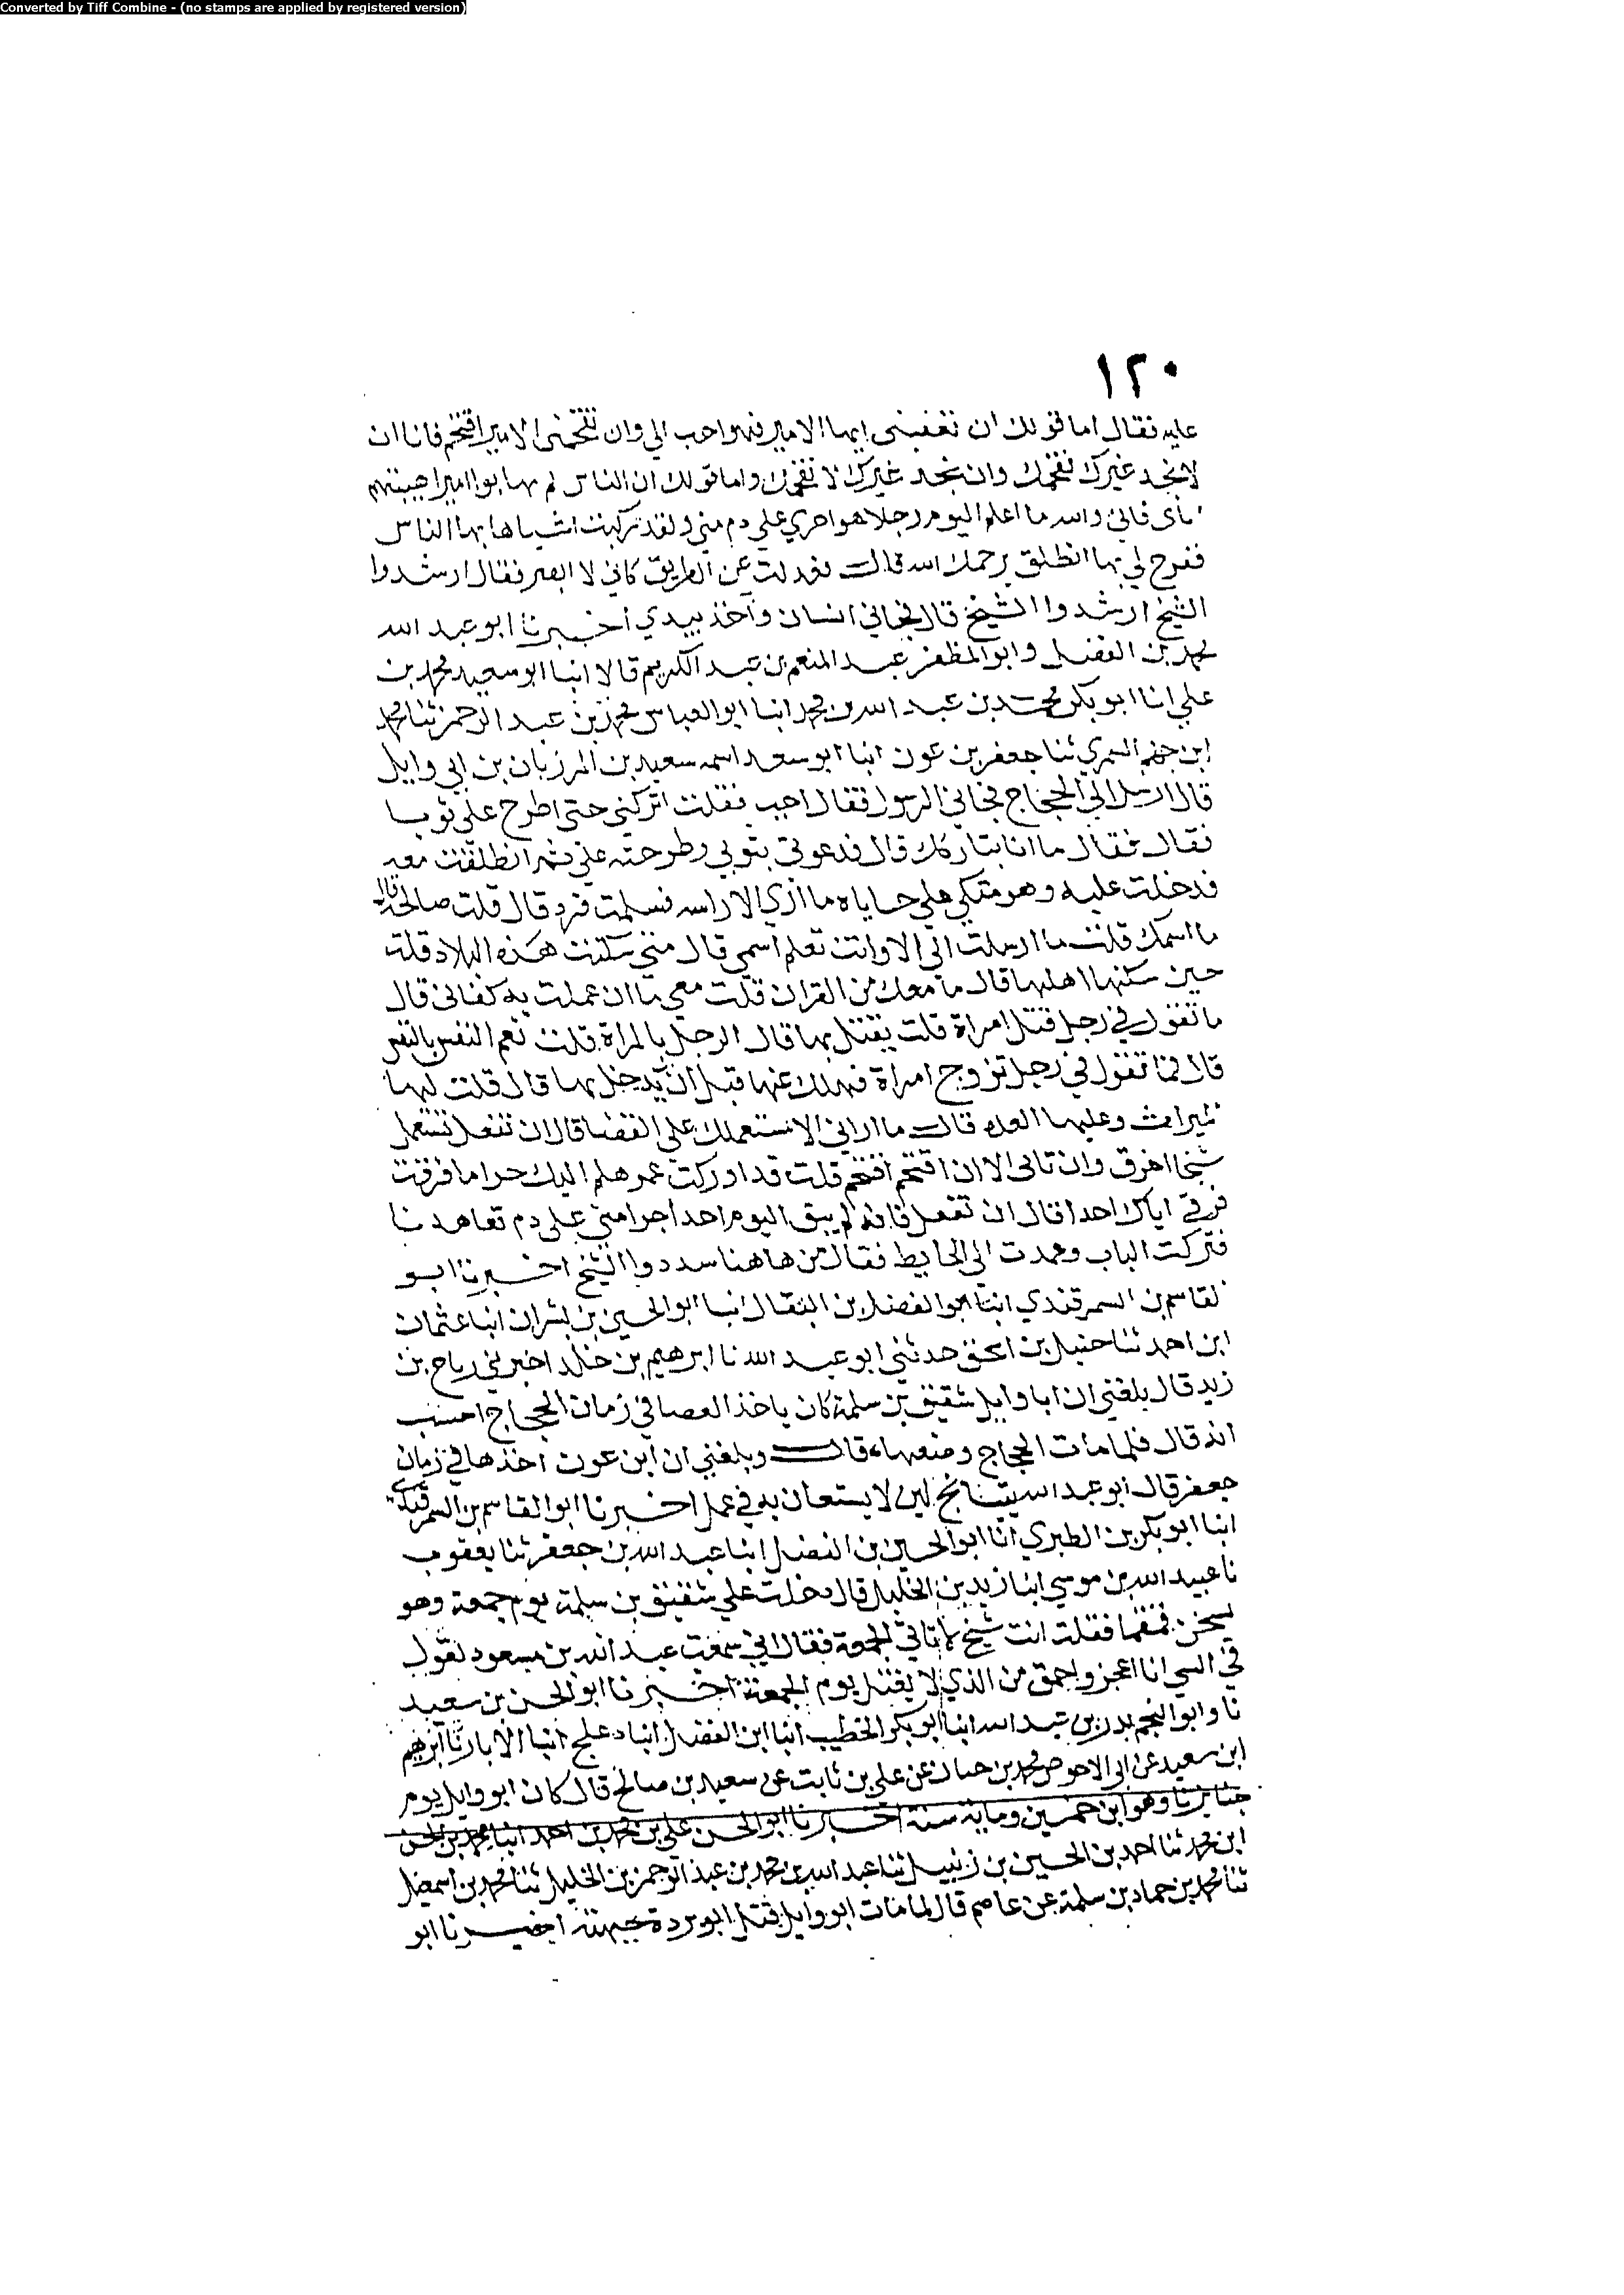 Converted by Tiff Combine - (no stamps are applied by registered version)
١٢٠
عليه فقال اما قولك ان تعفيني ايها الامير فهو احب الي وان تقحمني الامير اقتحم فانا ان
لا نجد غيرك نقحمك وان نجد غيرك لا نقحمك واما قولك ان الناس لم يهابوا اميرا هيبتهم
اياى فاني والله ما اعلم اليوم رجلا هو اجري علي دم مني ولقد ركبت اشيا هابها الناس
ففرج لي بها انطلق يرحمك الله قال فعدلت عن الطريق كاني لا ابصر فقال ارشدوا
الشيخ ارشدوا الشيخ قال فجاني انسان واخذ بيدي اخبرنا ابو عبد الله
محمد بن الفضل وابو المظفر عبد المنعم بن عبد الكريم قالا انبا ابو سعيد محمد بن
علي انا ابو بكر محمد بن عبد الله بن محمد انبا ابو العباس محمد بن عبد الرحمن ثنا محمد
ابن جهم السمري ثنا جعفر بن عون انبا ابو سعد اسمه سعيد بن المرزبان بن ابي وايل
قال ارسل الي الحجاج فجاني الرسول فقال اجب فقلت اتركني حتى اطرح علي ثوبا
فقال فقال ما انا بتاركك قال فدعوني بثوبي وطرحته علي ثم انطلقت معه
فدخلت عليه وهو متكي علي حشاياه ما ارى الا راسه فسلمت فرد قال قلت صالحة قال
ما اسمك قلت ما ارسلت الي الا وانت تعلم اسمي قال متى سكنت هذه البلاد قلت
حين سكنها اهلها قال ما معك من القران قلت معي ما ان عملت به كفاني قال
ما تقول في رجل قتل امراة قلت يقتل بها قال الرجل بالمراة قلت نعم النفس بالنفس
قال فما تقول في رجل تزوج امراة فهلك عنها قبل ان يدخل بها قال قلت لها
الميراث وعليها العدة قال ما اراني الا نستعملك علي القضا قال ان تفعل تستعمل
شيخا اخرق وان تابى الا ان اقتحم اقتحم قلت قد ادركت عمر هلم اليك حرا ما فرقت
فرقي اياك احدا قال ان تفعل فانه لم يبق اليوم احد اجرا مني على دم تعاهدنا
فتركت الباب وعمدت الي الحايط فقال من هاهنا سددوا الشيخ اخبرنا ابو
القاسم بن السمرقندي انبا ابو الفضل بن البقال انبا ابو الحسين بن بشران انبا عثمان
ابن احمد ثنا حنبل بن اسحق حدثني ابو عبد الله نا ابرهيم بن خالد اخبرني رباح بن
زيد قال بلغني ان ابا وايل شقيق بن سلمة كان ياخذ العصا في زمان الحجاج احسب
انه قال فلما مات الحجاج وضعها قال وبلغني ان ابن عون اخذها في زمان
جعفر قال ابو عبد الله لين لا يستعان به في عمل اخبرنا ابو القاسم بن السمرقندي
انبا ابو بكر بن الطبري انا ابو الحسين بن الفضل انبا عبد الله بن جعفر ثنا يعقوب
نا عبيد الله بن موسى انبا زيد بن الخليل قال دخلت علي شقيق بن سلمة يوم جمعة وهو
يسخن فقلت انت شيخ لا تاتي الجمعة فقال اني سمعت عبد الله بن مسعود يقول
في السي انا اعجز واحمق من الذي لا يغتسل يوم الجمعة اخبرنا ابو الحسن بن سعيد
نا وابو النجم بدر بن عبد الله انبا ابو بكر الخطيب انبا ابن الفضل انبا دعلج انبا الابار نا ابرهيم
ابن سعيد عن ابي الاحوص محمد بن حسان عن علي بن ثابت عن سعيد بن صالح قال كان ابو وايل يوم
جنايزنا وهو ابن خمسين وماية سنة اخبرنا ابو الحسن علي بن محمد بن احمد انبا محمد بن الحسن
ابن محمد ثنا احمد بن الحسين بن زنبيل ثنا عبد الله بن محمد بن عبد الرحمن بن الخليل ثنا محمد بن اسمعيل
ثنا محمد بن حماد بن سلمة عن عاصم قال لما مات ابو وايل قبل ابو بردة جبهته اخبرنا ابو